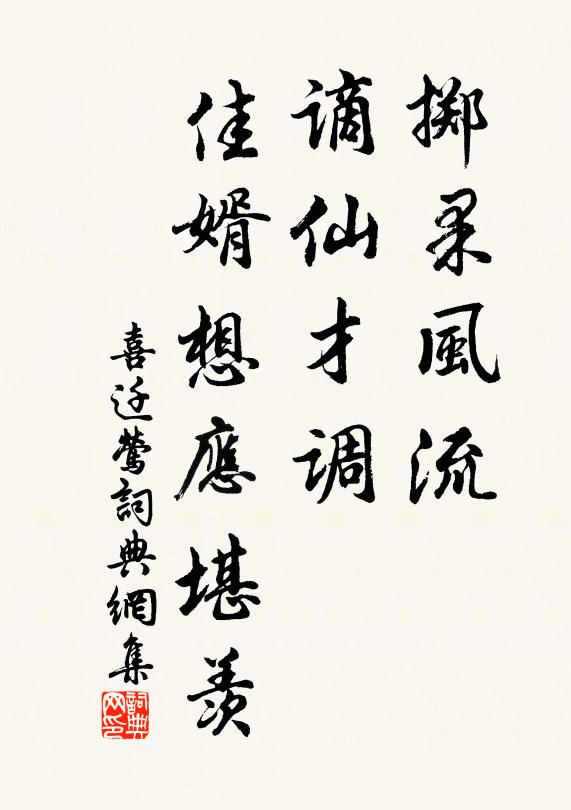 掷果風流
谪仙才调
佳婿想應堪羨
喜迁鶯詞典網集
詞典
网印